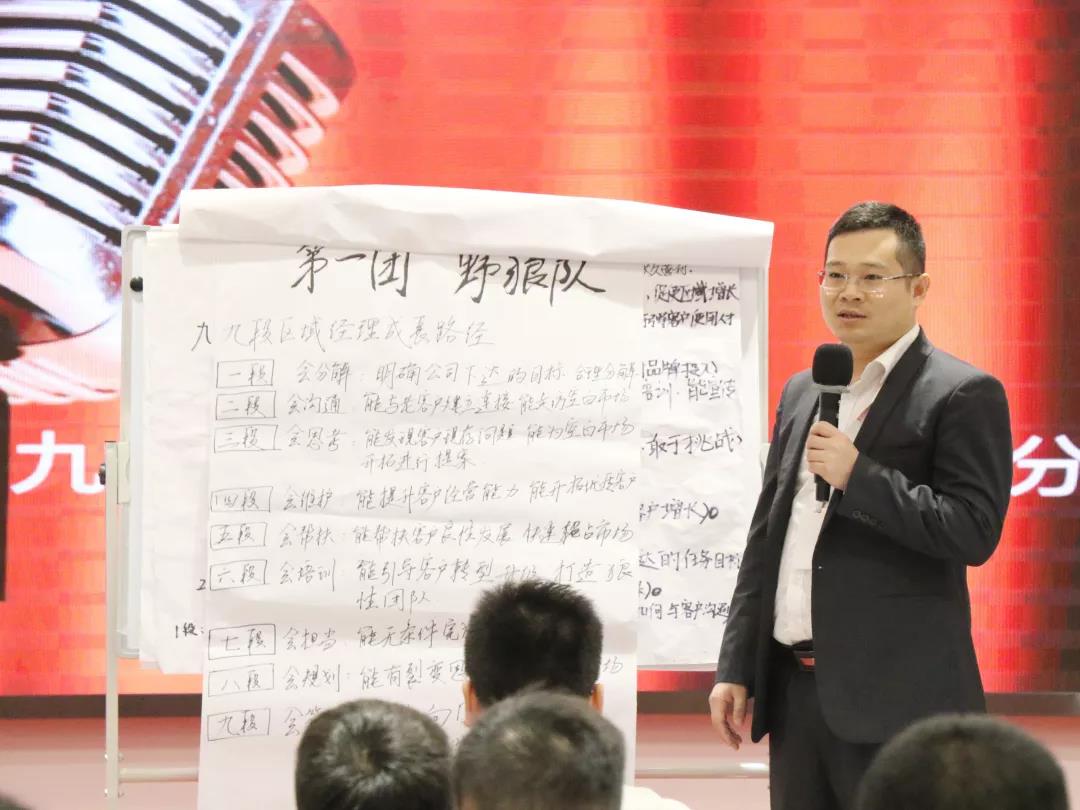 第一团 野狼队
九 九段区域经理成长路径
一段 会分解：明确公司下达的目标 合理分解
二段 会沟通：能与老客户建立连接 能走访空白市场
三段 会思考：能发现客户现存问题 能为空白市场
开拓进行提案
四段 会维护：能提升客户经营能力 能开拓优质客户
五段 会帮扶：能帮扶客户良性发展 快速抢占市场
2 六段 会培训：能引导客户转型升级 打造狼
性团队
1段：
七段 会担当：能无条件完
八段 会规划：能有裂变思 场
九段 会
促使区域增长
品牌投入
培训、能宣传
敢于挑战
客户增长)。
达的任务目标
如何与客户沟通
九
分